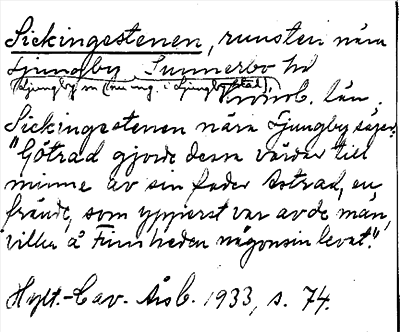 Sickingestenen, runsten nära
Ljungby, Sunnerbo hd
(Ljungby sn (nu ing. i Ljungby stad),
Kronob. län.
Sickingestenen nära Ljungby säger:
"Götrad gjorde dessa vårdar till
minne av sin fader Astrad, en
frände, som ypperst var av de män,
vilka å Finnheden någonsin levat."
Hylt.-Cav. Årsb. 1933, s. 74.